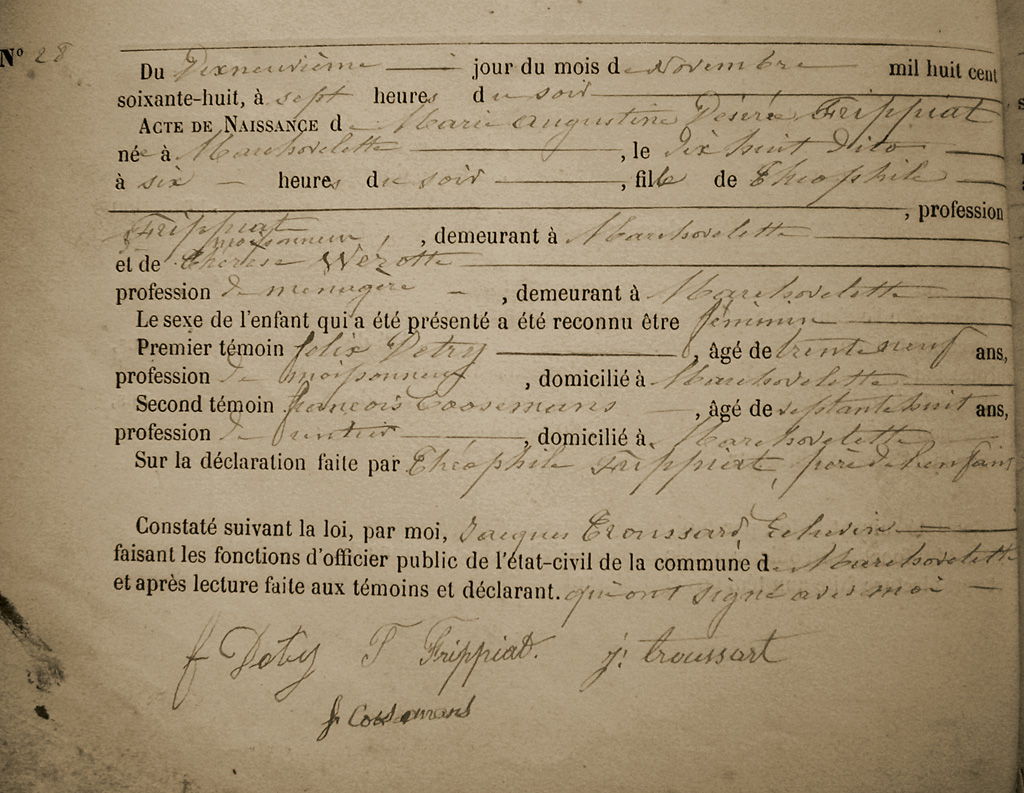 N° 28
Du Dixneuvième jour du mois de Novembre mil huit cent
soixante-huit, à sept heures du soir
ACTE DE NAISSANCE de Marie Augustine Désirée Frippiat
née à Marchovelette, le dix huit dito
à six heures du soir, fille de Théophile
, profession
Frippiat
moissonneur, demeurant à Marchovelette
et de Thérèse Wezotte
profession de menagère, demeurant à Marchovelette
Le sexe de l'enfant qui a été présenté a été reconnu être féminin
Premier témoin felix Detry, âgé de trente neuf ans,
profession de moissonneur, domicilié à Marchovelette
Second témoin françois Coosemans, âgé de septante huit ans,
profession de rentier, domicilié à Marchovelette
Sur la déclaration faite par Théophile Frippiat, père de l'enfant
Constaté suivant la loi, par moi, Jacques Troussard, Echevin
faisant les fonctions d'officier public de l'état-civil de la commune de Marchovelette
et après lecture faite aux témoins et déclarant. qui ont signé avec moi
f Detry T Frippiat. j. troussart
fr Coosemans